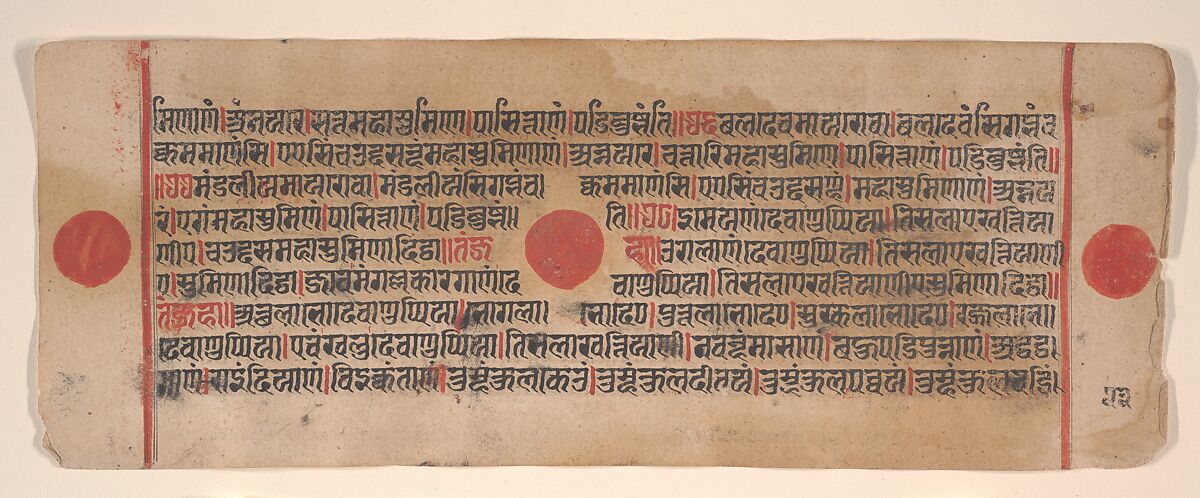 मिणाणं।अन्नयरे।सत्तमहासुमिणे।पासित्ताणं।पडिबुज्झंति॥७६बलदेवमायरोवा।बलदेवंसिगब्भंव
क्कममाणंसि।एएसिंचउद्दसण्हंमहासुमिणाणं।अन्नयरे।चत्तारिमहासुमिणे।पासित्ताणं।पडिबुज्झंति॥
॥७७मंडलीयमायरोवा।मंडलीयंसिगब्भंव। क्कममाणंसि।एएसिंचउद्दसण्हं।महासुमिणाणं।अन्नय
रं।एगंमहासुमिणं।पासित्ताणं।पडिबुज्झं॥ ति॥७८इमेयणंदेवाणुप्पिया।तिसलाएखत्तिया
णीए।चउद्दसमहासुमिणादिट्ठा॥तंज हा॥उरालाणंदेवाणुप्पिया।तिसलाएखत्तियाणी
ए।सुमिणादिट्ठा।जावमंगल्लकारगाणंदे वाणुप्पिया।तिसलाएखत्तियाणीएसुमिणादिट्ठा॥
तंजहा॥अत्थलाभोदेवाणुप्पिया।भोगला। भोदे०।पुत्तलाभोदे०।सुक्खलाभोदे०।रज्जलाभो॥
देवाणुप्पिया।एवंखलुदेवाणुप्पिया।तिसलाखत्तियाणी।नवण्हंमासाणं।बहुपडिपुन्नाणं।अद्धट्ठ।
माणं।राइंदियाणं।विइक्कंताणं।अम्हंकुलकेउं।अम्हंकुलदीवयं।अम्हंकुलपव्वयं।अम्हंकुलवडिं।